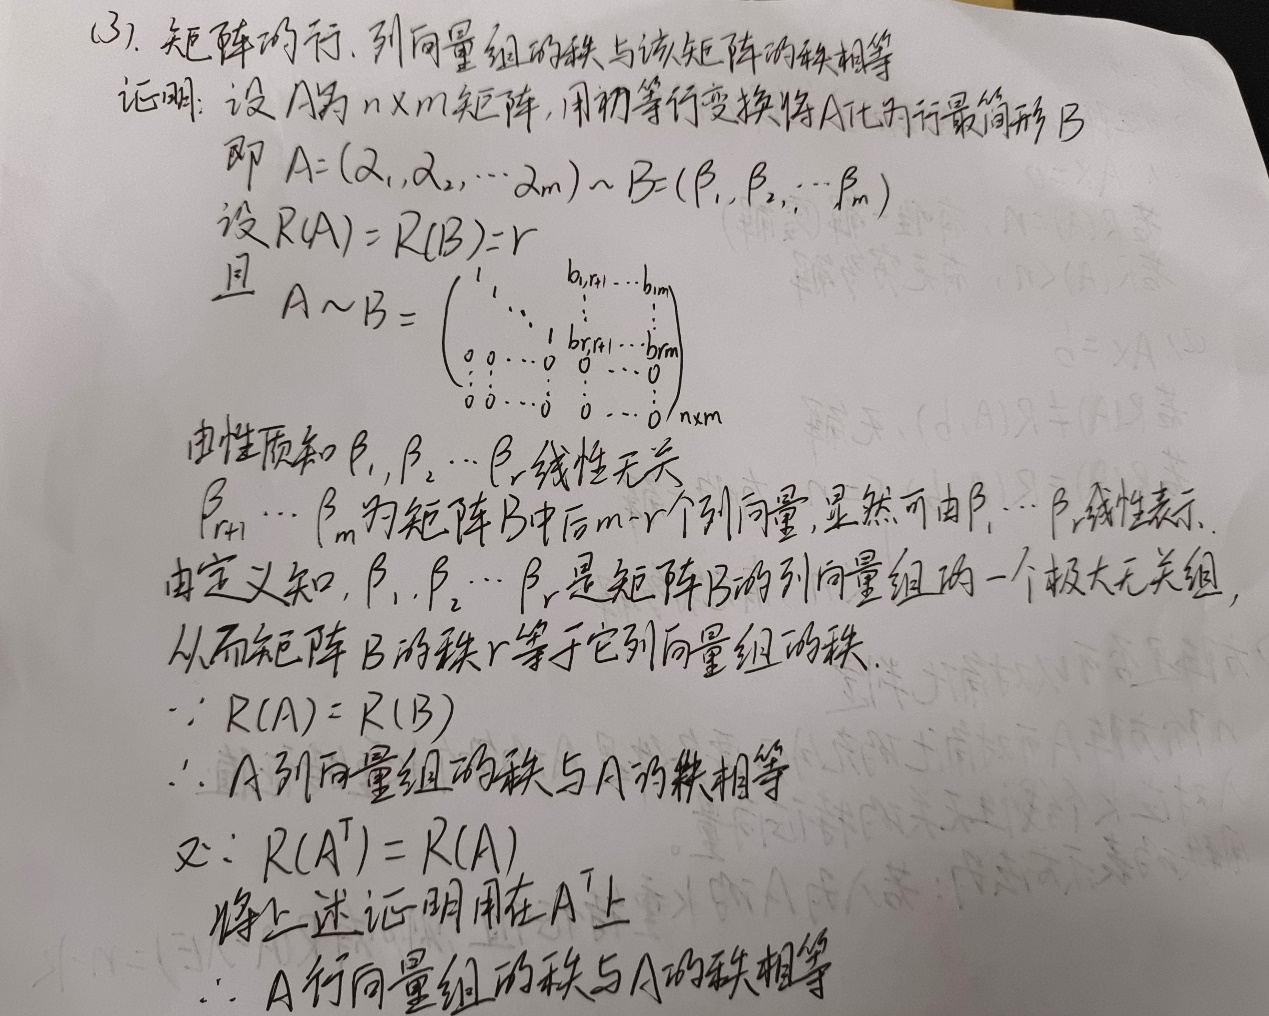 (3). 矩阵的行、列向量组的秩与该矩阵的秩相等
证明: 设A为n×m矩阵,用初等行变换将A化为行最简形B
即 A=(α₁,α₂,…αm)~B=(β₁,β₂,…βm)
设R(A)=R(B)=r
且 A~B=
1 b1,r+1 … b1m
1 ⋮ ⋮
⋱
1 br,r+1 … brm
0 0 … 0 0 … 0
⋮ ⋮ ⋮ ⋮ ⋮
0 0 … 0 0 … 0 n×m
由性质知β₁,β₂…βr线性无关
βr+1…βm为矩阵B中后m-r个列向量,显然可由β₁…βr线性表示.
由定义知,β₁,β₂…βr是矩阵B的列向量组的一个极大无关组,
从而矩阵B的秩r等于它列向量组的秩.
∵ R(A)=R(B)
∴ A列向量组的秩与A的秩相等
又∵ R(Aᵀ)=R(A)
将上述证明用在Aᵀ上
∴ A行向量组的秩与A的秩相等